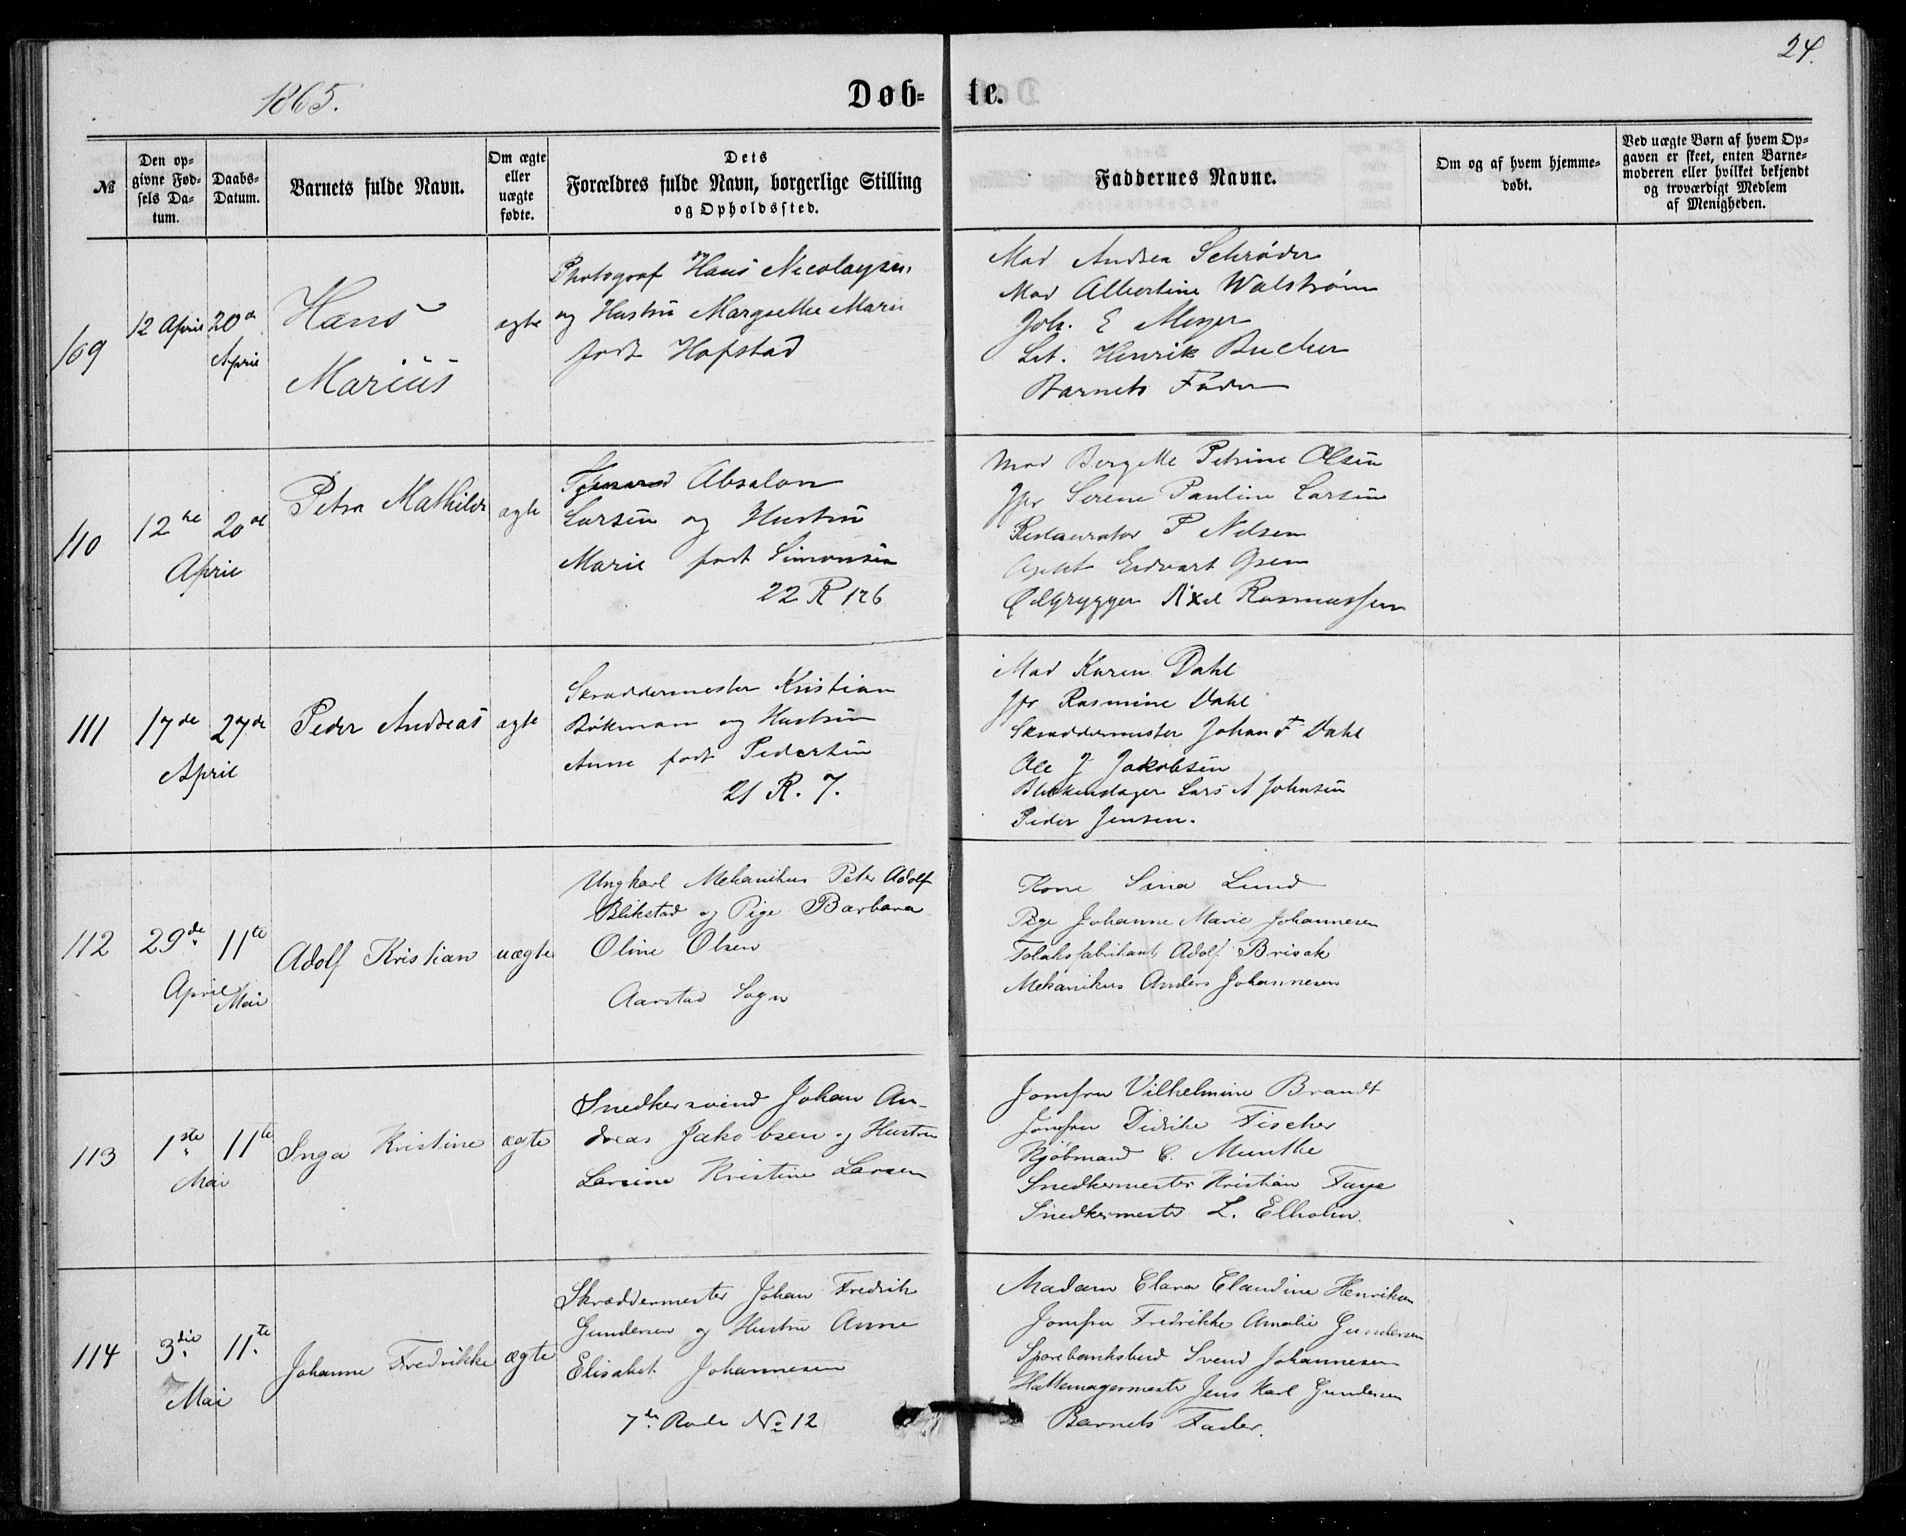 24.
1865.
Døb- te.
№
Den op-
givne Fød-
sels Da-
tum.
Daabs-
Datum.
Barnets fulde Navn.
Om ægte
eller
uægte
fødte.
Dets
Forældres fulde Navn, borgerlige Stilling
og Opholdssted.
Faddernes Navne.
Om og af hvem hjemme-
døbt.
Ved uægte Børn af hvem Op-
gaven er skeet, enten Barne-
moderen eller hvilket bekjendt
og troværdigt Medlem
af Menigheden.
109
12 April
20de
April
Hans
Marius
ægte
Photograf Hans Nicolaysen
og Hustru Margrethe Marie
født Hofstad
Mad Andrea Schrøder
Mad Albertine Walstrøm
Joh. E Meyer
Lit. Henrik Bucher
Barnets Fader
110
12te
April
20de
Petra Mathilde
ægte
Absalon
Larsen og Hustru
Marie født Simonsen
22 R 126
Mad Bergette Petrine Olsen
Jfr Serene Pauline Larsen
Restauratør P Nilsen
Edvart
Axel Rasmussen
111
17de
April
27de
Peder Andreas
ægte
Skræddermester Kristian
Bøkman og Hustru
Anne født Pedersen
21 R. 7.
Mad Karen Dahl
Jfr Rasmine Dahl
Skræddermester Johan F Dahl
Ole J Jakobsen
Blikkenslager Lars A Johnsen
Peder Jensen.
112
29de
April
11te
Mai
Adolf Kristian
uægte
Ungkarl Mekanikus Peter Adolf
Blikstad og Pige Barbara
Oline Olsen
Aarstad Sogn
Kone Sina Lund
Pige Johanne Marie Johannesen
Tobaksfabrikant Adolf Brisak
Mekanikus Anders Johannesen
113
1ste
Mai
11te
Inga Kristine
ægte
Snedkersvend Johan An-
dreas Jakobsen og Hustru
Larsine Kristine Larsen
Jomfru Vilhelmine Brandt
Jomfru Didrike Fischer
Kjøbmand C. Munthe
Snedkermester Kristian Faye
Snedkermester L. Elholm.
114
3die
Mai
11te
Johanne Fredrikke
ægte
Skræddermester Johan Fredrik
Gundersen og Hustru Anne
Elisabet Johannesen
7de Rode No 12
Madam Clara Claudine Henriksen
Jomfru Fredrikke Amalie Gundersen
Sparebanksbud Svend Johannesen
Hattemagermester Jens Karl Gundersen
Barnets Fader.